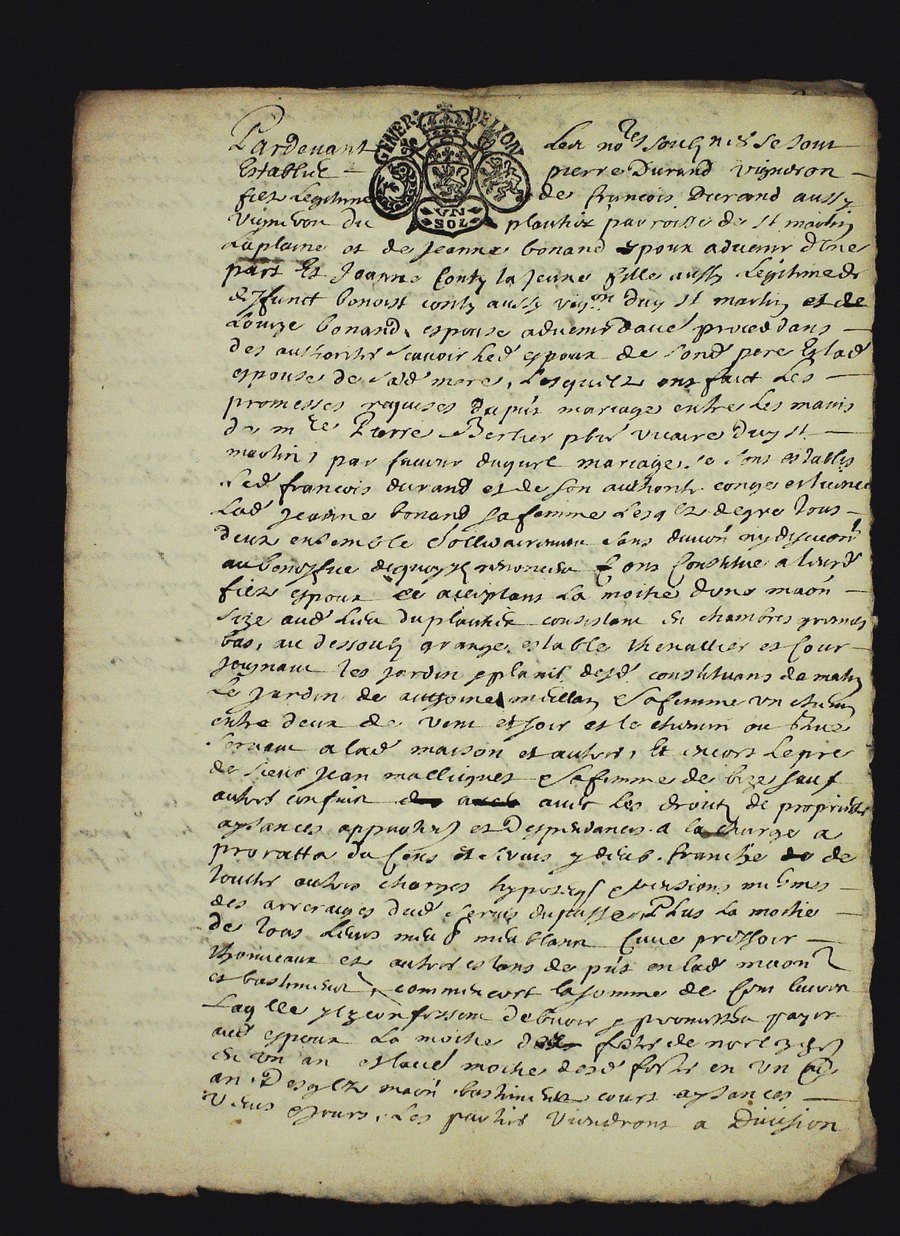 GENER. DE LION
UN SOL
Pardevant Les no.res soubsignés se sont
Establis pierre Durand vigneron
fils Legitime de francois Durand aussy
vigneron du plantier parroisse de st martin
Laplaine et de Jeanne bonand Espoux advenir d'une
part Et Joanne Conty la Jeune fille aussy Légitime de
deffunct benoist conty aussy vig.on duy st martin et de
Louize bonand, espouse advenir dautre proceddans
des authorités scavoir led espoux de sond pere Et lad
espouse de sad mere, Lesquels ont faict Les
promesses requises du pnt mariage entre les mains
de m.re Pierre Bertier pbre vicaire duy st
martin, par faveur duquel mariage, se sont establis
Led francois durand et de son authorité conge et licence
Lad Jeanne bonand sa femme Lesqls de gre tous
deux ensemble sollidairement sans division ny discution
au benefice de quoy ils renoncent ont Constitue a leurd
fils espoux acceptant La moitie d'une maon
size aud Lieu du plantier consistant en chambres grenier
bas, au dessoubs grange, estable et cour
Joignant les jardin desd constituans de matin
Le Jardin de anthoine & sa femme un chemin
entre deux de vent et soir et le chemin ou rue
servant a lad maison et autres, Et encore le pre
de sieur Jean & sa femme de bize sauf
autres confins avec Les droits de proprietés
aysances appartenances et Despendances a la charge a
proratta du Cens et servis y deub. franche de
toutes autres charges hypoteques & pensions mesmes
des arrerages dud servis du passé, Plus La moitie
de tous Leurs meubles meublans Cuve pressoir
Thonneaux et autres estans de pnt en lad maon
et bastiment, comme encore la somme de Cent livres
Laqlle ils confessent debvoir & promettent payer
aud espoux La moitie feste de noel
en un an et lautre moitie desd festes en un
an. Desqls maon bastiment court aysances
Les parties viendront a Division